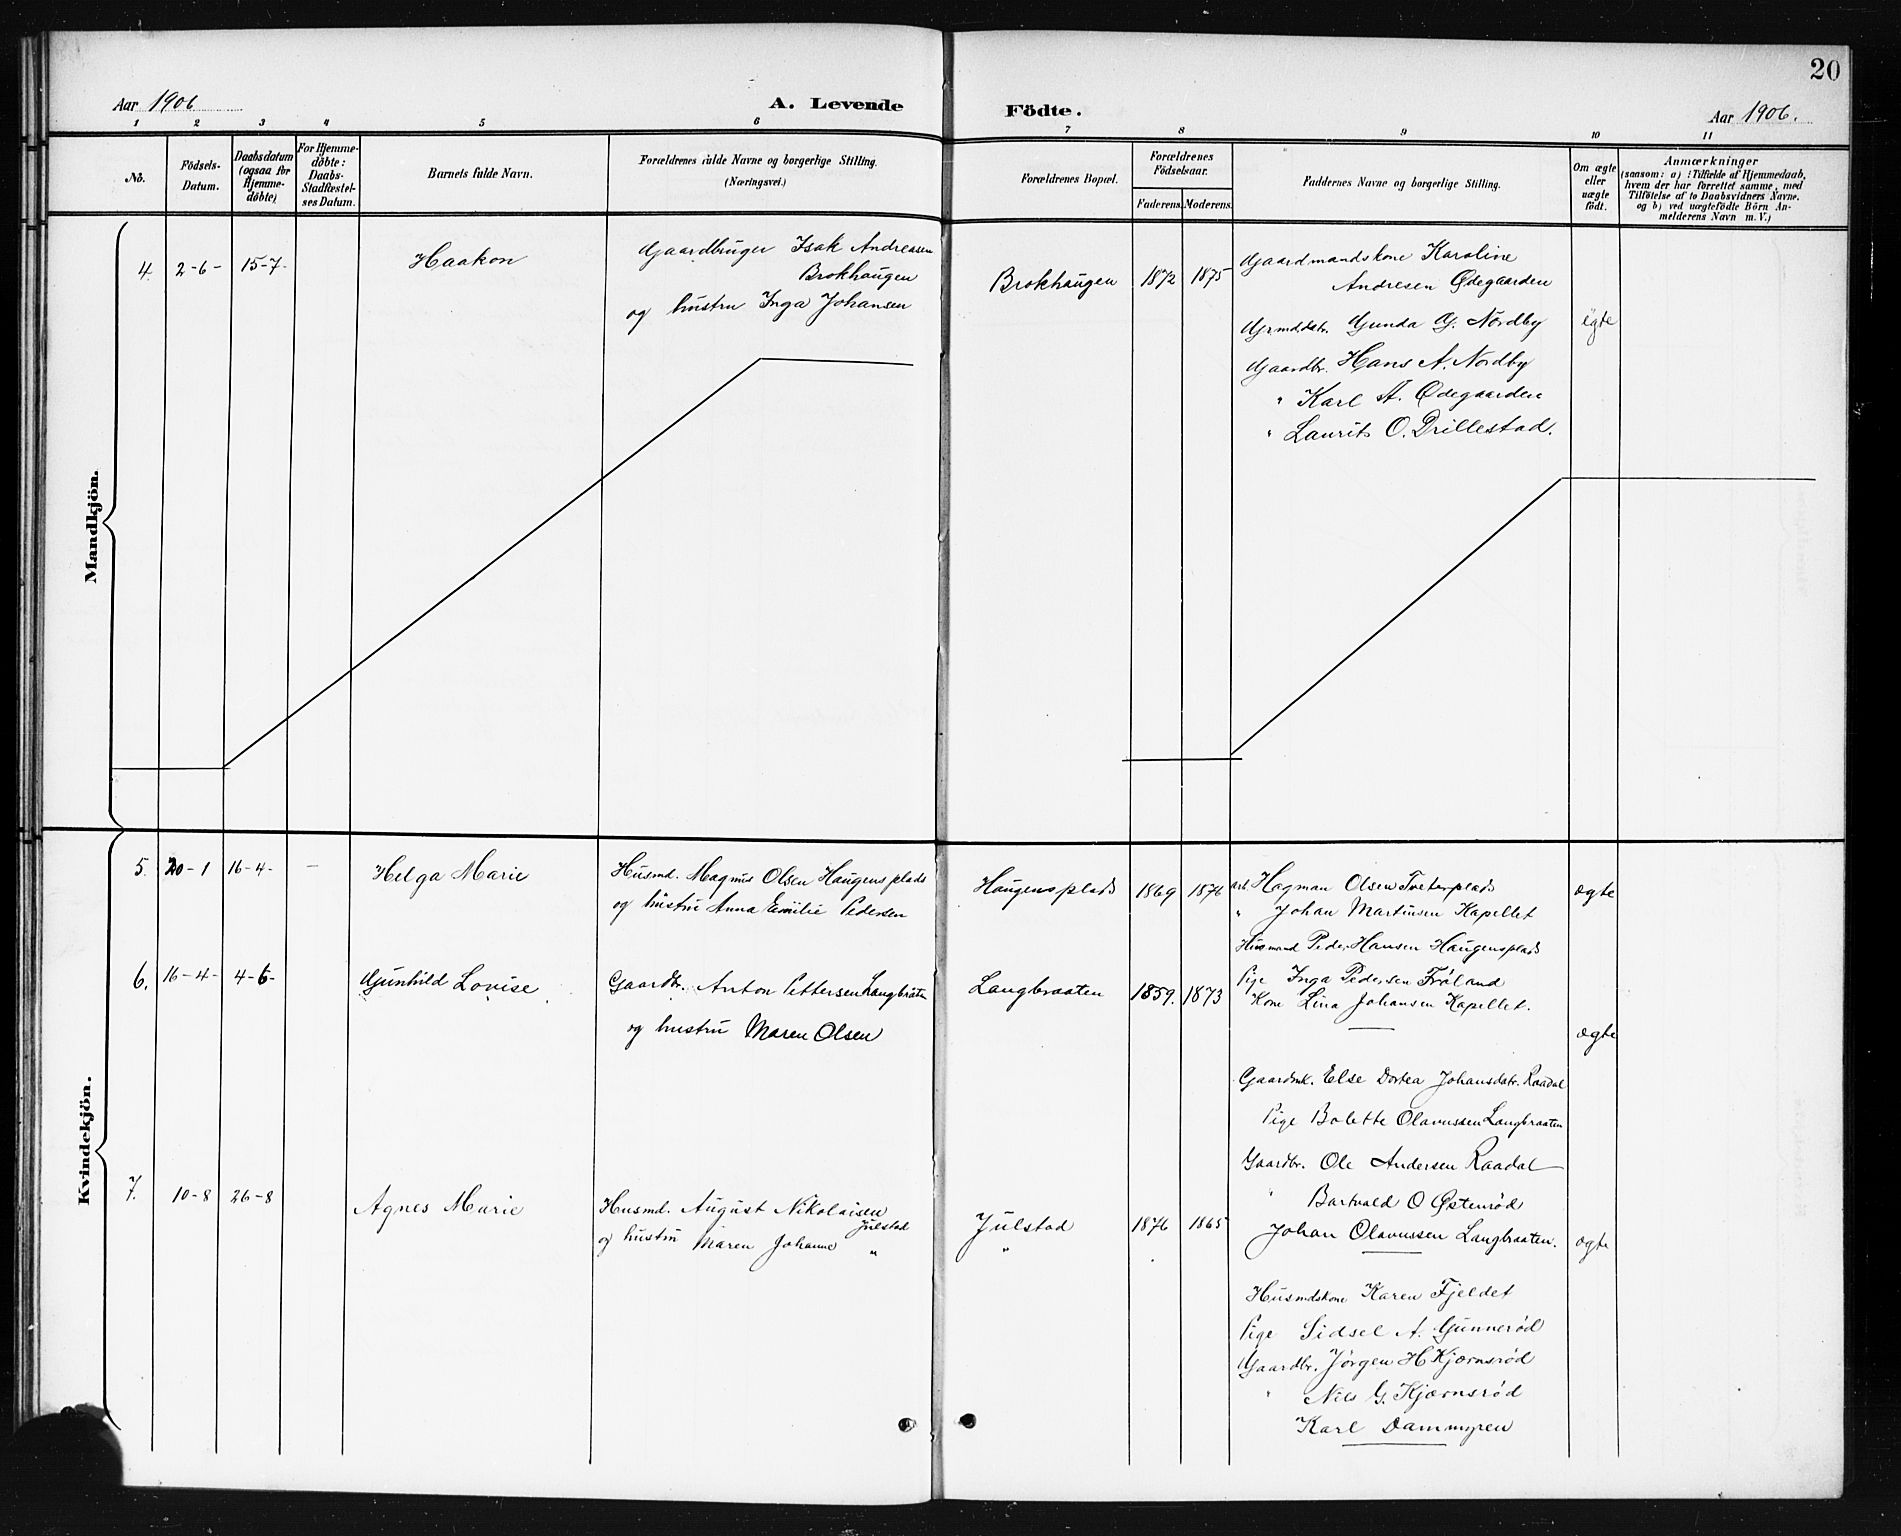 20
Aar 1906
A. Levende Födte.
Aar 1906.
1 2 3 4 5 6 7 8 9 10 11
No.
Födsels-Datum.
Daabsdatum (ogsaa for Hjemme-döbte).
For Hjemme-döbte: Daabs-Stadfæstel-ses Datum.
Barnets fulde Navn.
Forældrenes fulde Navne og borgerlige Stilling.
(Næringsvei.)
Forældrenes Bopæl.
Forældrenes Födselsaar.
Faderens. Moderens.
Faddernes Navne og borgerlige Stilling.
Om ægte eller uægte födt.
Anmærkninger
(saasom: a) i Tilfælde af Hjemmedaab,
hvem der har forrettet samme, med
Tilföielse af to Daabsvidners Navne.
og b) ved uægtefödte Börn An-
melderens Navn m. V.)
Mandkjön.
4. 2-6- 15-7- Haakon
Gaardbruger Isak Andreasen
Brokhaugen
og hustru Inga Johansen
Brokhaugen 1872 1875
Gaardmandskone Karoline
Andresen Ødegaarden
Grmddtr. Gunda G. Nordby
Gaardbr. Hans A. Nordby
" Karl A. Ødegaarden
" Laurits O. Drillestad.
egte
Kvindekjön.
5. 20-1 16-4- — Helga Marie
Husmd. Magnus Olsen Haugens plads
og hustru Anna Emilie Pedersen
Haugensplads 1869 1876
arb. Hagman Olsen Tveterplads
" Johan Martinsen Kapellet
Husmand Peder Hansen Haugensplads
Pige Inga Pedersen Frøland
Kone Lina Johansen Kapellet.
ægte
6. 16-4- 4-6- Gunhild Lovise
Gaardbr. Anton Pettersen Langbraaten
og hustru Maren Olsen
Langbraaten 1859. 1873
Gaardmk. Else Dortea Johansdatr. Raadal
Pige Bolette Olavussen Langbraaten
Gaardbr. Ole Andersen Raadal
" Bartvald O Østenrød
Johan Olavussen Langbraaten.
ægte
7. 10-8 26-8 Agnes Marie
Husmd. August Nikolaisen
Julstad
og hustru Maren Johanne "
Julstad 1876 1865
"
Husmdskone Karen Fjeldet
Pige Sidsel A. Gunnerød
Gaardbr. Jørgen H Kjærnsrød
" Nils G. Kjærnsrød
Karl Dammyren
ægte